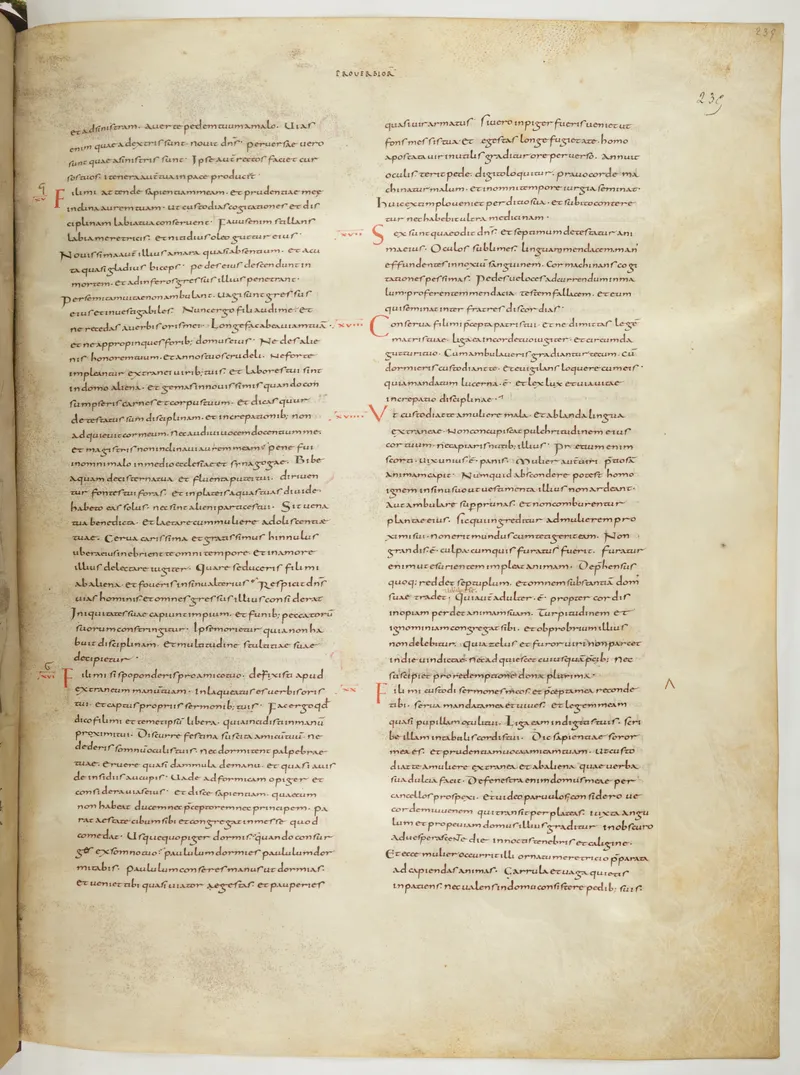 PROVERBIOR̄
239
239
et adsinistram. Averte pedem tuum amalo. Vias
enim quae adextris sunt. novit dn̄s. perversae vero
sunt quae asinistris sunt. Ipse aut̄ rectos faciet cur
sos tuos. itinera aut̄ tua inpace producit.
Fili mi attende sapientiam meam. et prudentiae meae
inclina aurem tuam. ut custodias cogitationes et dis
ciplinam labia tua conservent. Favus enim stillans
labia meretricis. et nitidius oleo guttur eius.
Novissima aut̄ illius amara quasi absentium. et acu
ta quasi gladius biceps. pedes eius descendunt in
mortem. et adinferos gressus illius penetrant.
Per semitam vitae non ambulant. vagi sunt gressus
eius et investigabiles. Nunc ergo fili audi me. et
ne recedas averbis oris mei. Longe fac ab ea viam tuā.
et ne appropinques forib; domus eius. Ne des alie
nis honorem tuum. et annos tuos crudeli. Ne forte
impleantur extranei virib; tuis. et labores tui sint
in domo aliena. et gemas in novissimis quando con
sumpseris carnes et corpus tuum. et dicas quur
detestatus sum disciplinam. et increpationib; non
adquievit cor meum. nec audivi vocem docentium me.
et magistris non inclinavi aurem meam. pene fui
in omni malo in medio ecclesiae et synagogae. Bibe
aquam de cisterna tua. et fluenta putei tui. diriven
tur fontes tui foras. et in plateis aquas tuas divide.
habeto eas solus. nec sint alieni participes tui. Sit vena
tua benedicta. et laetare cum muliere adoliscentiae
tuae. Cerva carissima et gratissimus hinnulus
ubera eius inebrient te omni tempore. et in amore
illius delectare iugiter. Quare seduceris fili mi
ab aliena. et foveris in sinu alterius. Respicit dn̄s
vias hominis. et omnes gressus illius considerat.
Iniquitates suae capiunt impium. et funib; peccatorū
suorum constringitur. Ipse morietur quia non ha
buit disciplinam. et multitudine stultitiae suae
decipietur.
xvi
Fili mi si spoponderis pro amico tuo. defixisti apud
extraneum manum tuam. inlaqueatus es verbis oris
tui. et captus propriis sermonib; tuis. Fac ergo qđ
dico fili mi. et temetipsum libera. quia incidisti in manū
proximi tui. Discurre festina suscita amicum tuū. ne
dederis somnum oculis tuis. nec dormitent palpebrae
tuae. Eruere quasi dammula de manu. et quasi avis
de insidiis aucupis. Vade ad formicam o piger. et
considera vias eius. et disce sapientiam. quae cum
non habeat ducem nec p̄ceptorem nec principem. pa
rat aestate cibum sibi et congregat in messe quod
comedat. Usquequo piger dormis. quando consur
ges ex somno tuo. paululum dormies paululum dor
mitabis. paululum conseres manus ut dormias.
et veniet tibi quasi viator aegestas. et pauperies
quasi vir armatus. Si vero inpiger fueris veniet ut
fons messis tua. et egestas longe fugiet a te. homo
apostata vir inutilis graditur ore perverso. Annuit
oculis terit pede. digito loquitur. pravo corde ma
chinatur malum. et in omni tempore iurgia seminat.
huic extemplo veniet perditio sua. et subito contere
tur nec habebit ultra medicinam.
xvii
Sex sunt quae odit dn̄s. et septimum detestatur ani
ma eius. Oculos sublimes. linguam mendacem. man̄
effundentes innoxiū sanguinem. Cor machinans cogi
tationes pessimas. Pedes veloces ad currendum in ma
lum. proferentem mendacia. testem fallacem. et eum
qui seminat inter fratres discordias.
xviii
Conserva fili mi p̄cepta patris tui. et ne dimittas legē
matris tuae. liga ea in corde tuo iugiter. et circumda
gutturi tuo. Cum ambulaveris gradiantur tecum. cū
dormieris custodiant te. et evigilans loquere cum eis.
quia mandatum lucerna. ē. et lex lux. et via vitae
increpatio disciplinae.
xviiii
Ut custodiat te a muliere mala. et a blanda lingua
extraneae. Non concupiscat pulchritudinem eius
cor tuum. nec capiaris nutib; illius. Pretium enim
scorti vix unius. ē. panis. Mulier aut̄ viri p̄tiosā
animam capit. Numquid abscondere potest homo
ignem in sinu suo ut vestimenta illius non ardeant.
Aut ambulare sup prunas. et non comburentur
plantae eius. sic qui ingreditur ad mulierem pro
ximi sui. non erit mundus cum tetigerit eam. Non
grandis. ē. culpa cum quis furatus fuerit. furatur
enim ut esurientem impleat animam. Dephensus
quoq; reddet septuplum. et omnem substantiā dom̄
suae tradet. Qui aut̄ adulter. ē. propter cordis
inopiam perdet animam suam. Turpitudinem et
ignominiam congregat sibi. et obprobrium illius
non delebitur. Quia zelus et furor viri non parcet
in die vindictae. nec adquiescet cuiusquā p̄cib; nec
suscipiet pro redemptione dona plurima.
xx
Fili mi custodi sermones meos. et p̄cepta mea reconde
tibi. serva mandata mea et vives. et legem meam
quasi pupillam oculi tui. Liga eam in digitis tuis. scri
be illam in tabulis cordis tui. Dic sapientiae soror
mea es. et prudentiam voca amicam tuam. ut custo
diat te a muliere extranea. et ab aliena quae verba
sua dulcia facit. De fenestra enim domus meae per
cancellos prospexi. et video parvulos. considero ve
cordem iuvenem qui transit per plateas. iuxta angu
lum et prope viam domus illius graditur in obscuro
advesperascente die. in noctis tenebris et caligine.
Et ecce mulier occurrit illi ornatu meretricio p̄parata
ad capiendas animas. Garrula et vaga quietis
inpatiens. nec valens in domo consistere pedib; suis.